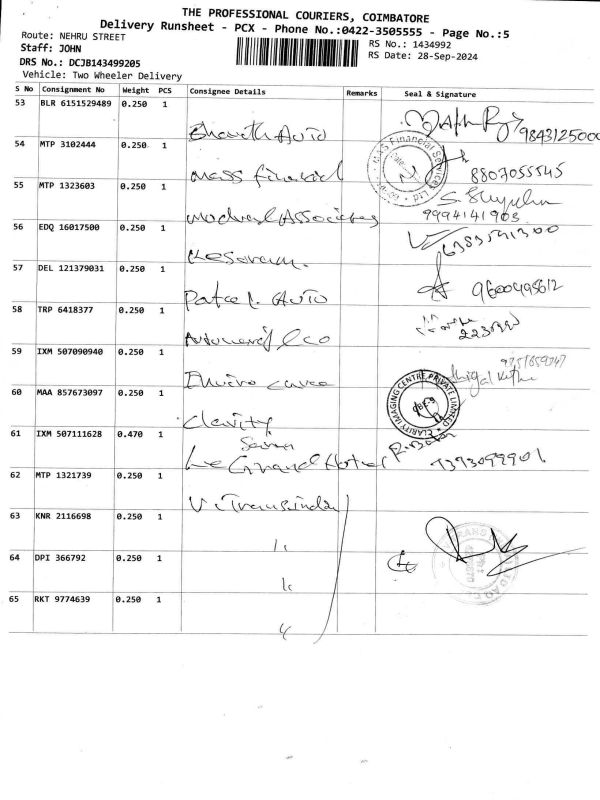 THE PROFESSIONAL COURIERS, COIMBATORE
Delivery Runsheet - PCX - Phone No.:0422-3505555 - Page No.:5
Route: NEHRU STREET
RS No.: 1434992
Staff: JOHN
RS Date: 28-Sep-2024
DRS No.: DCJB143499205
Vehicle: Two Wheeler Delivery
S No Consignment No Weight PCS Consignee Details Remarks Seal & Signature
53 BLR 6151529489 0.250 1
Bharath Auto 9843125000
54 MTP 3102444 0.250 1
Mass Financial 8807055545
MAS Financial Services LTD
55 MTP 1323603 0.250 1
Associates 9994141903
56 EDQ 16017500 0.250 1
Kesavan 6383591300
57 DEL 121379031 0.250 1
Patcol Auto 9600498612
58 TRP 6418377 0.250 1
59 IXM 507090940 0.250 1
Enviro care
60 MAA 857673097 0.250 1
Clarity
CLARITY IMAGING CENTRE PRIVATE LIMITED
CBE-9
61 IXM 507111628 0.470 1
Le Grand Hotel 7393099901
62 MTP 1321739 0.250 1
V. Transindia
63 KNR 2116698 0.250 1
64 DPI 366792 0.250 1
65 RKT 9774639 0.250 1